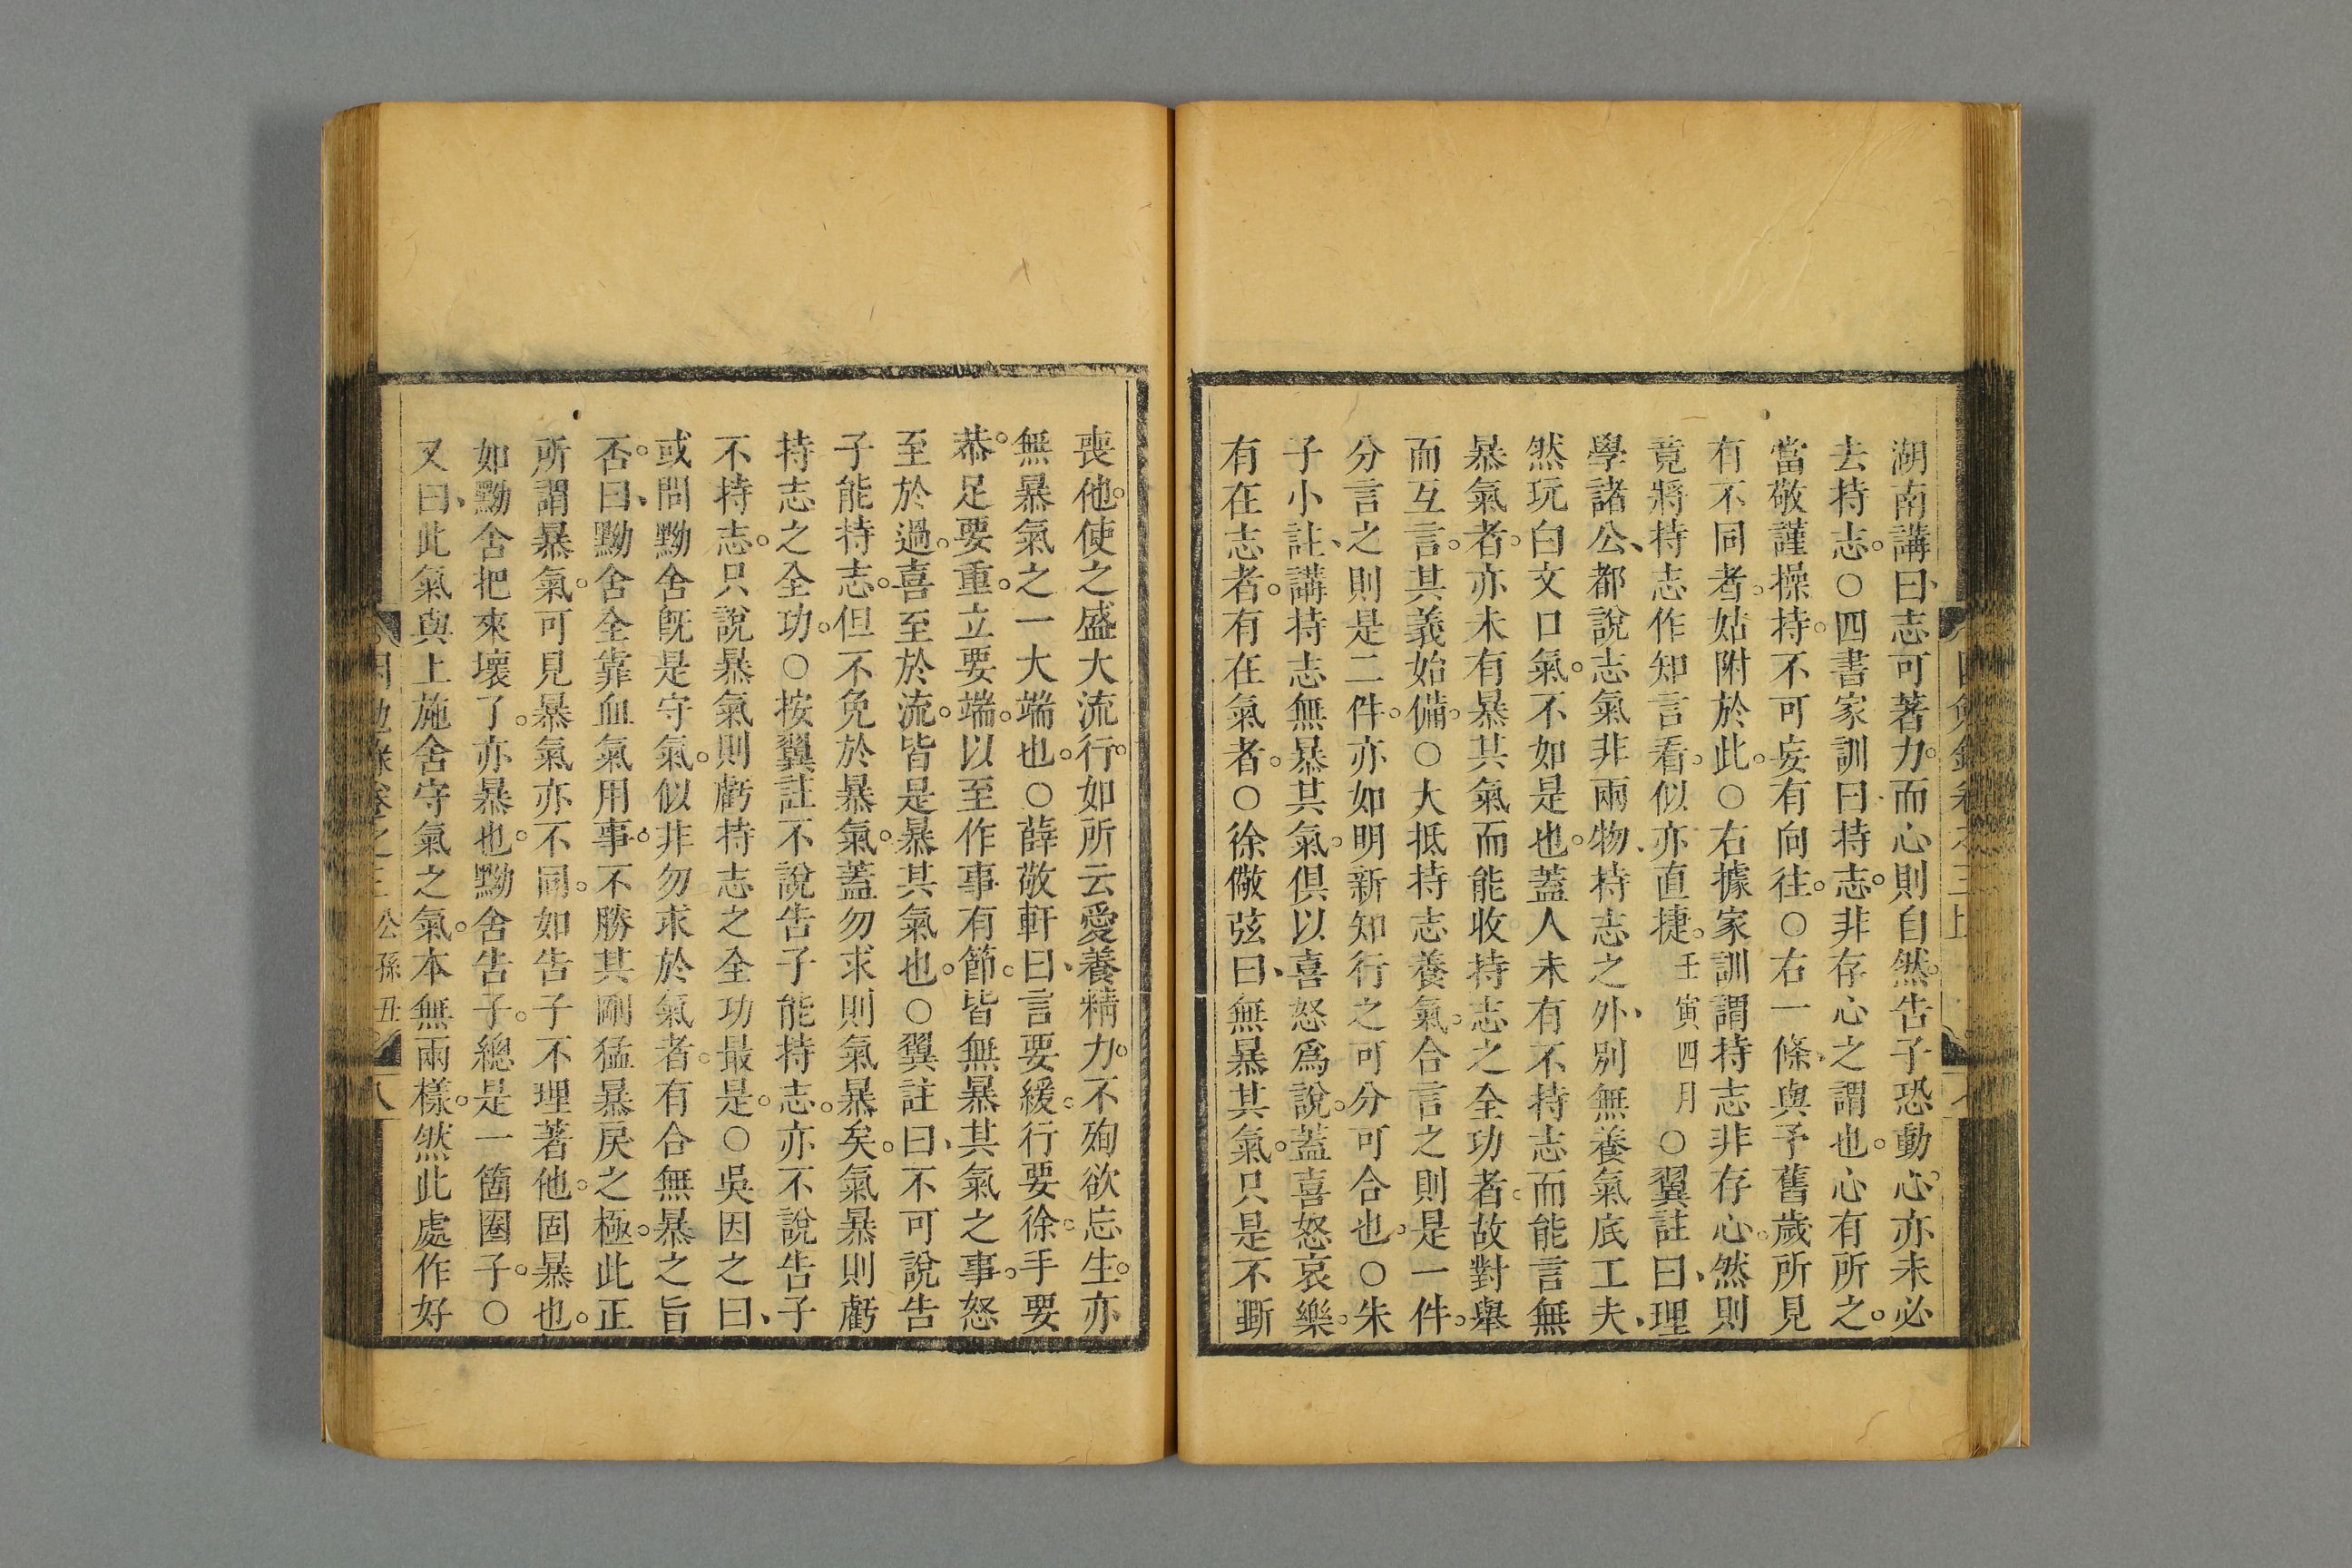 湖南講曰、志可著力。而心則自然。告子恐動心。亦未必
去持志。○四書家訓曰持志。非存心之謂也。心有所之。
當敬謹操持。不可妄有向往。○右一條、與予舊歲所見
有不同者。姑附於此。○右據家訓謂持志非存心。然則
竟將持志作知言看。似亦直捷。壬寅四月○翼註曰、理
學諸公、都說志氣非兩物、持志之外、別無養氣底工夫、
然玩白文口氣。不如是也。蓋人未有不持志而能言無
暴氣者。亦未有暴其氣而能收持志之全功者。故對舉
而互言。其義始備。○大抵持志養氣。合言之則是一件。
分言之則是二件。亦如明新知行之可分可合也。○朱
子小註、講持志無暴其氣。俱以喜怒爲說。蓋喜怒哀樂。
有在志者。有在氣者。○徐儆弦曰、無暴其氣。只是不斲
喪他。使之盛大流行。如所云愛養精力。不殉欲忘生。亦
無暴氣之一大端也。○薛敬軒曰、言要緩。行要徐。手要
恭。足要重。立要端。以至作事有節。皆無暴其氣之事。怒
至於過。喜至於流。皆是暴其氣也。○翼註曰、不可說告
子能持志。但不免於暴氣。蓋勿求則氣暴矣。氣暴則虧
持志之全功。○按翼註不說告子能持志。亦不說告子
不持志。只說暴氣則虧持志之全功最是。○吳因之曰、
或問黝舍旣是守氣。似非勿求於氣者。有合無暴之旨
否。曰、黝舍全靠血氣用事。不勝其剛猛暴戾之極。此正
所謂暴氣。可見暴氣亦不同。如告子不理著他。固暴也。
如黝舍把來壞了。亦暴也。黝舍告子。總是一箇圈子。○
又曰、此氣與上施舍守氣之氣。本無兩樣。然此處作好
公孫丑
八